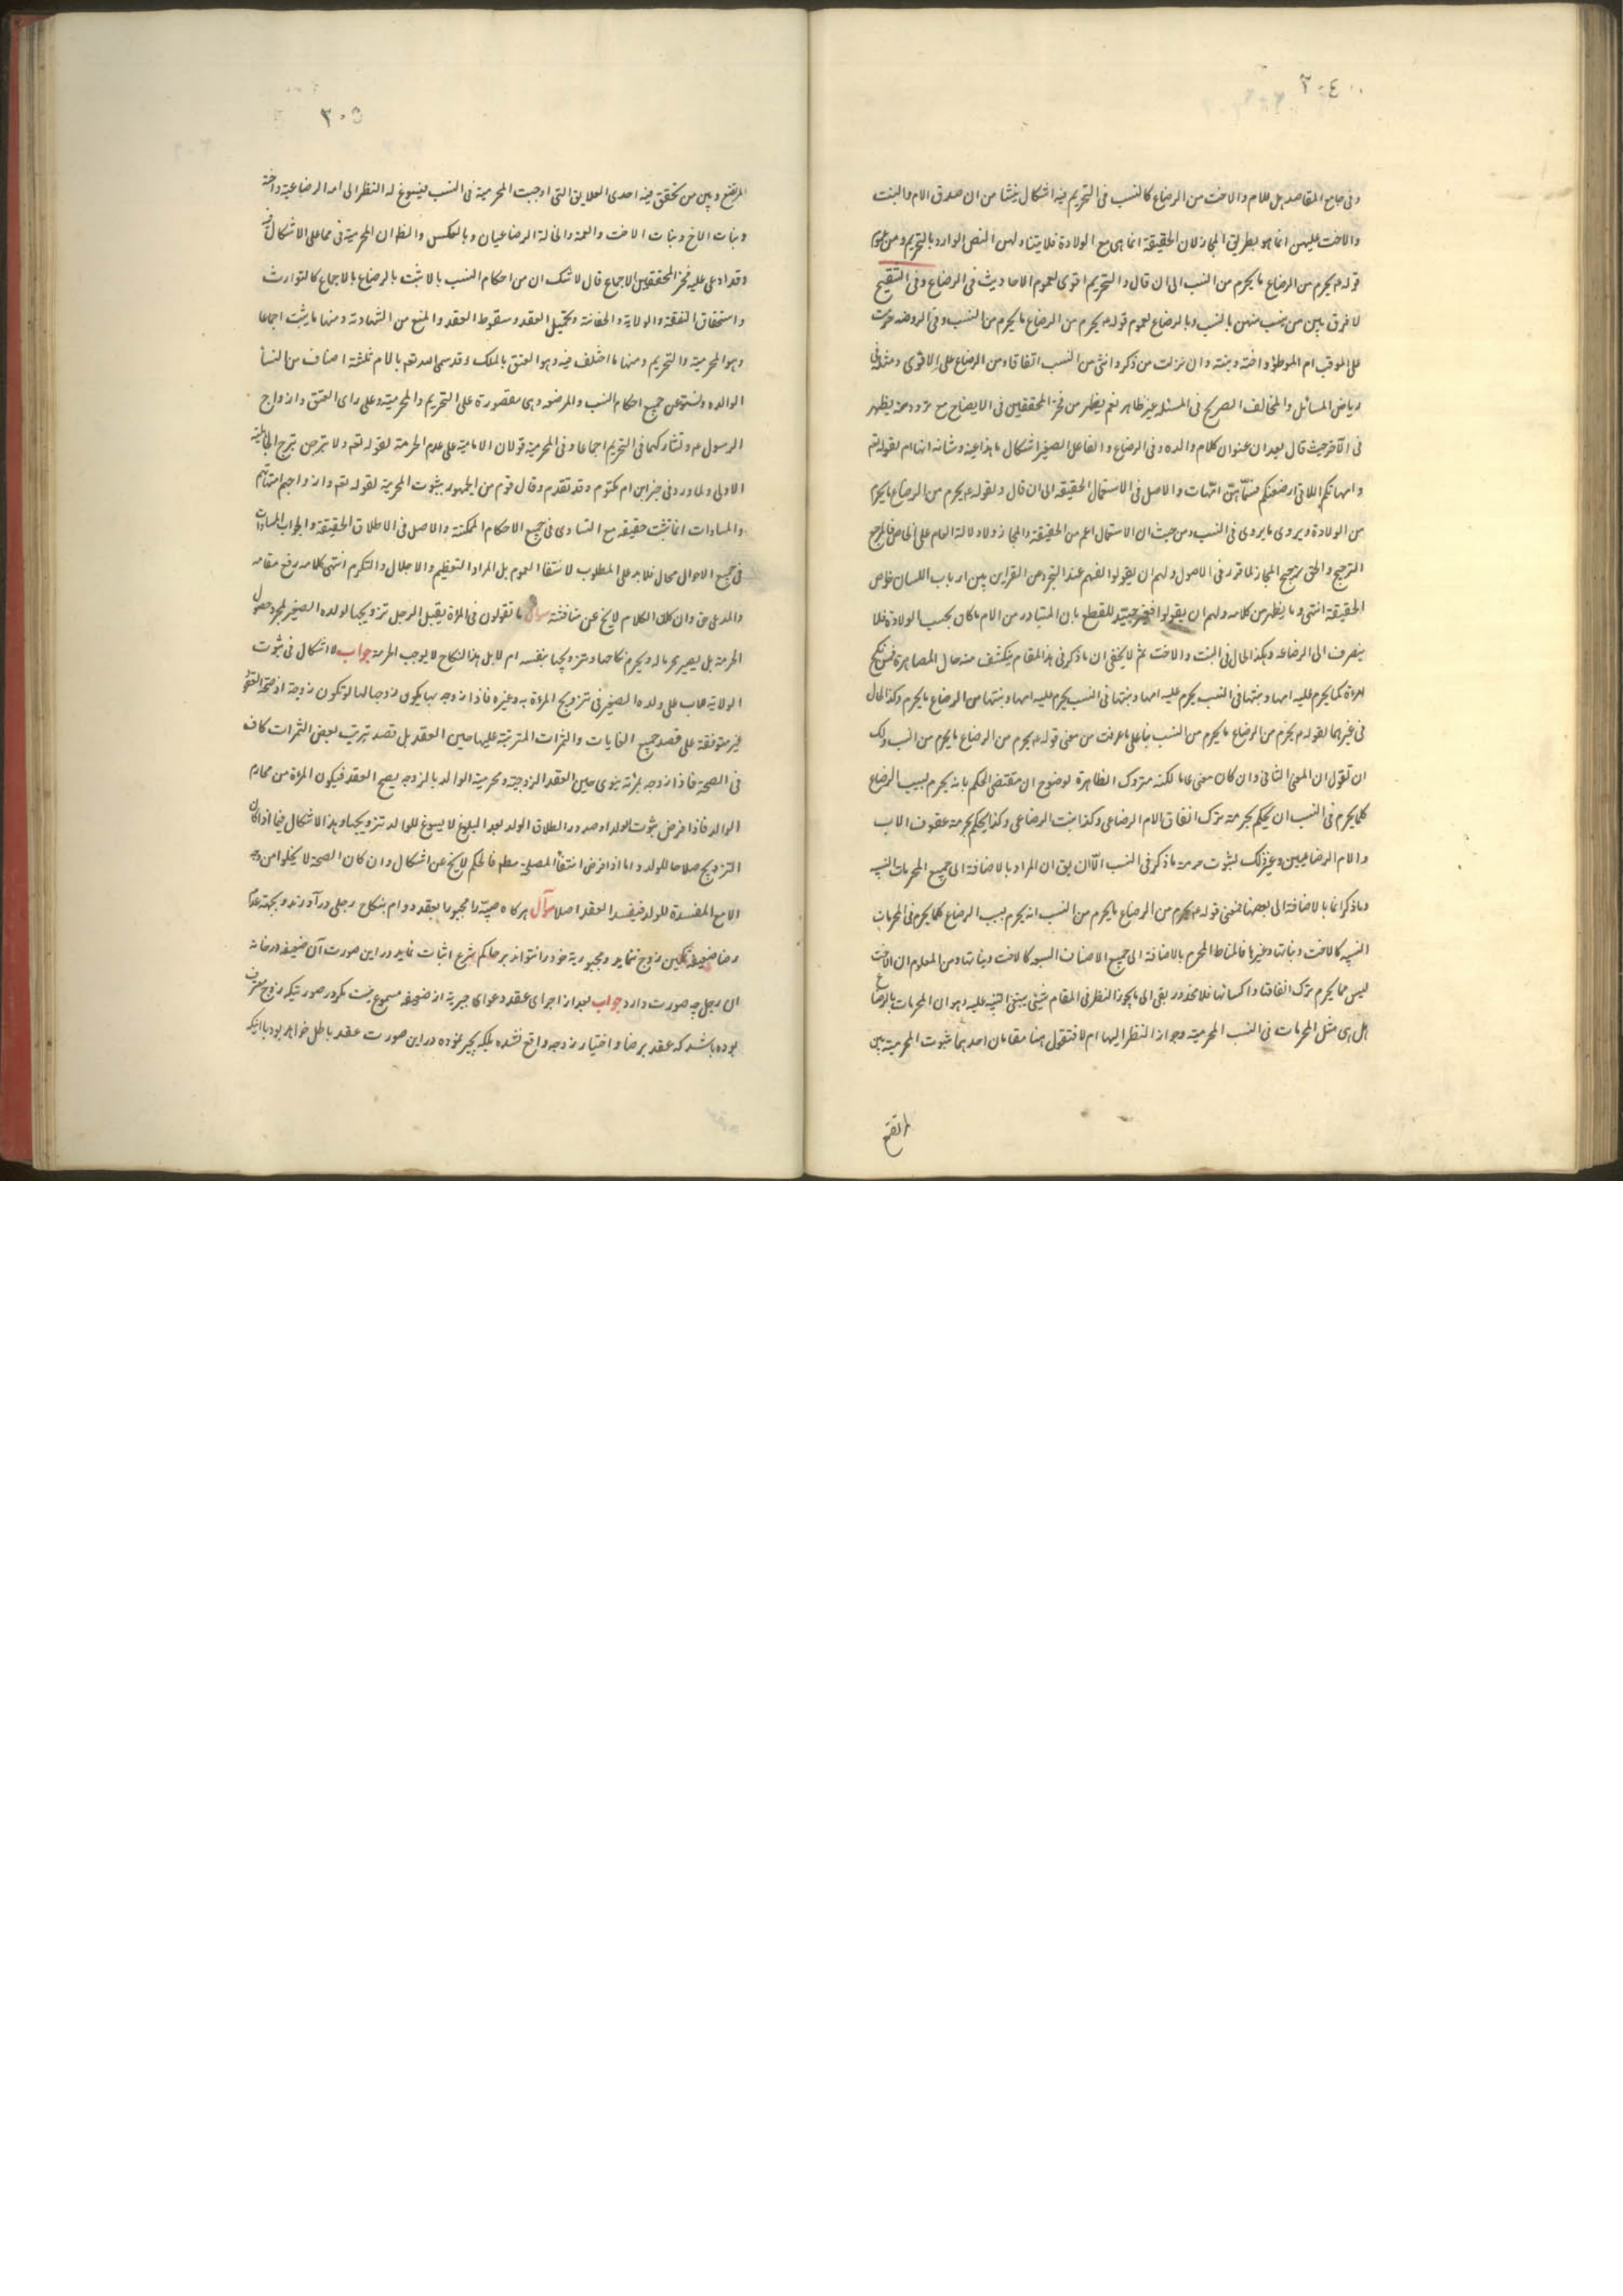 ٣٠٤
وفی جامع المقاصد هل للام والاخت من الرضاع کالنسب فی التحریم فیه اشکال ینشا من ان صدق الام والبنت
والاخت علیهن انما هو بطریق المجاز لان الحقیقة انما هی مع الولادة فلا یتناولهن النص الوارد بالتحریم ومن عموم
قوله ع یحرم من الرضاع ما یحرم من النسب الی ان قال والتحریم اقوی لعموم الاحادیث فی الرضاع وفی التنقیح
لا فرق بین من ینسب منهن بالنسب وبالرضاع لعموم قوله ع یحرم من الرضاع ما یحرم من النسب وفی الروضه حرمت
علی الموقب ام الموطؤ واخته وبنته وان نزلت من ذکر وانثی من النسب اتفاقا ومن الرضاع علی الاقوی ومثله فی
ریاض المسائل والمخالف الصریح فی المسئله غیر ظاهر نعم یظهر من فخر المحققین فی الایضاح مع تردد منه یظهر
فی الآخر حیث قال بعد ان عنوان کلام والده وفی الرضاع والفاعل الصغیر اشکال ما هذا عینه وشانه انها ام لقوله تعم
وامهاتکم اللاتی ارضعنکم فسمّاهنّ امّهات والاصل فی الاستعمال الحقیقه الی ان قال ولقوله ع یحرم من الرضاع ما یحرم
من الولادة ویروی ما یروی فی النسب ومن حیث ان الاستعمال اعم من الحقیقة والمجاز ولا دلالة العام علی الخاص فالمرجع
الترجیح والحق ترجیح المجاز لما قرر فی الاصول ولهم ان یقولوا الفهم عند التجرد عن القراین بین ارباب اللسان خواص
الحقیقة انتهی وما یظهر من کلامه ولهم ان یقولوا للقطع بان المتبادر من الام ما کان بحسب الولادة فلا
ینصرف الی الرضاعه وهکذا الحال فی البنت والاخت ثم لا یخفی ان ما ذکر فی هذا المقام ینکشف منه حال المصاهرة فمن نکح
امراة کما یحرم علیه امها وبنتها فی النسب یحرم علیه امها وبنتها من الرضاع ما یحرم وکذا الحال
فی غیرهما لقوله ع یحرم من الرضاع ما یحرم من النسب بناء علی ما عرفت من معنی قوله ع یحرم من الرضاع ما یحرم من النسب ولک
ان تقول ان المعنی الثانی وان کان معنی عاما لکنه متروک الظاهرة لوضوح ان مقتضی الحکم بانه یحرم بسبب الرضاع
کلما یحرم فی النسب ان یحکم بحرمة ترک انفاق الام الرضاعی وکذا بنت الرضاعی وکذا یحکم بحرمة عقوق الاب
والام الرضاعیین وغیر ذلک لثبوت حرمة ما ذکر فی النسب الّا ان یق ان المراد بالاضافة الی جمیع المحرمات النسبیه
وما ذکر انما بالاضافة الی بعضها فمعنی قوله ع یحرم من الرضاع ما یحرم من النسب انه یحرم بسبب الرضاع کلما یحرم فی المحرمات
النسبیه کالاخت وبناتها وغیرها فالمناط المحرم بالاضافة الی جمیع الاصناف السبعه کالاخت وبناتها ومن المعلوم ان الاخت
لیس مما یحرم ترک انفاقها واکسائها فلا محذور بقی الی ما یجوز النظر فی المقام شیئی ینبغی التنبیه علیه وهو ان المحرمات بالرضاع
هل هی مثل المحرمات فی النسب المحرمیة وجواز النظر الیها ام لا فنقول هنا مقامان احدهما ثبوت المحرمیة بین
المرتضع
٣٠٥
المرتضع وبین من تحقق فیه احدی العلایق التی اوجبت المحرمیة فی النسب فیسوغ له النظر الی امه الرضاعیة واخته
وبنات الاخ وبنات الاخت والعمة والخالة الرضاعیات وبالعکس والظ ان المحرمیة فی مما علی الاشکال فیه
وقد ادعی علیه فخر المحققین الاجماع قال لا شک ان من احکام النسب ما لا یثبت بالرضاع بالاجماع کالتوارث
واستحقاق النفقة والولایة والحضانة وتحمیل العقد وسقوط العقد والمنع من الشهادة ومنها ما یثبت اجماعا
وهو المحرمیة والتحریم ومنها ما اختلف فیه وهو العتق بالملک وقد سمی الله تعم بالام ثلثة اصناف من النسأ
الوالده وتستوعب جمیع احکام النسب والمرضعه وهی مقصورة علی التحریم والمحرمیة وعلی رای العتق وازواج
الرسول ع وتشارکهما فی التحریم اجماعا وفی المحرمیة قولان الامامیة علی عدم الحرمة لقوله تعم ولا تبرجن تبرج الجاهلیة
الاولی ولما ورد فی خبر ابن ام مکتوم وقد تقدم وقال قوم من الجمهور بثبوت المحرمیة لقوله تعم وازواجهم امهاتهم
والمساوات انما تثبت حقیقه مع التساوی فی جمیع الاحکام الممکنة والاصل فی الاطلاق الحقیقة والجواب المساوات
فی جمیع الاحوال محال فلا یدل علی المطلوب لانتفا العموم بل المراد التعظیم والاجلال والتکرم انتهی کلامه رفع مقامه
والمدعی حق وان کان الکلام لا یخ عن مناقشة سوال ما تقولون فی المراة یقبل الرجل تزویجها لولده الصغیر لمجرد حصول
الحرمة بل یصیر محرما له ویحرم نکاحها وتزویجها بنفسه ام لا بل هذا النکاح لا یوجب الحرمة جواب لا اشکال فی ثبوت
الولایة للاب علی ولده الصغیر فی تزویج المراة به وغیره فاذا زوجه بها یکون زوجا لها او تکون زوجة اذ صحة العقود
غیر متوقفة علی قصد جمیع الغایات والثمرات المترتبة علیها حین العقد بل قصد ترتیب بعض الثمرات کاف
فی الصحة فاذا زوجه بمرئة ینوی حین العقد الزوجیة ومحرمیة الوالد بالزوجه یصح العقد فیکون المراة من محارم
الوالد فاذا فرض ثبوت الولد او صدور الطلاق الولد بعد البلوغ لا یسوغ للوالد تزویجها وهذا لا اشکال فیما اذا کان
التزویج صلاحا للولد واما اذا فرض انتفأ المصلحة مطم فالحکم لا یخ عن اشکال وان کان الصحة لا یخلوا من وجه
الا مع المفسدة للولد فیفسد العقد اصلا سوآل هرکاه صبیّه را مجبورا بعقد دوام بنکاح رجلی درآورند وبجهة عدم
رضا ضعیفه تمکین زوج ننماید ومجبوریة خود را نتواند بر حاکم شرع اثبات نماید در این صورت آن ضعیفه در خانه
ان رجل چه صورت دارد جواب بعد از اجرای عقد دعوای جبریة از ضعیفه مسموع نیست مکر در صورتیکه زوج معترف
بوده باشد که عقد برضا واختیار زوجه واقع نشده بلکه بجبر بوده در این صورت عقد باطل خواهد بود با اینکه